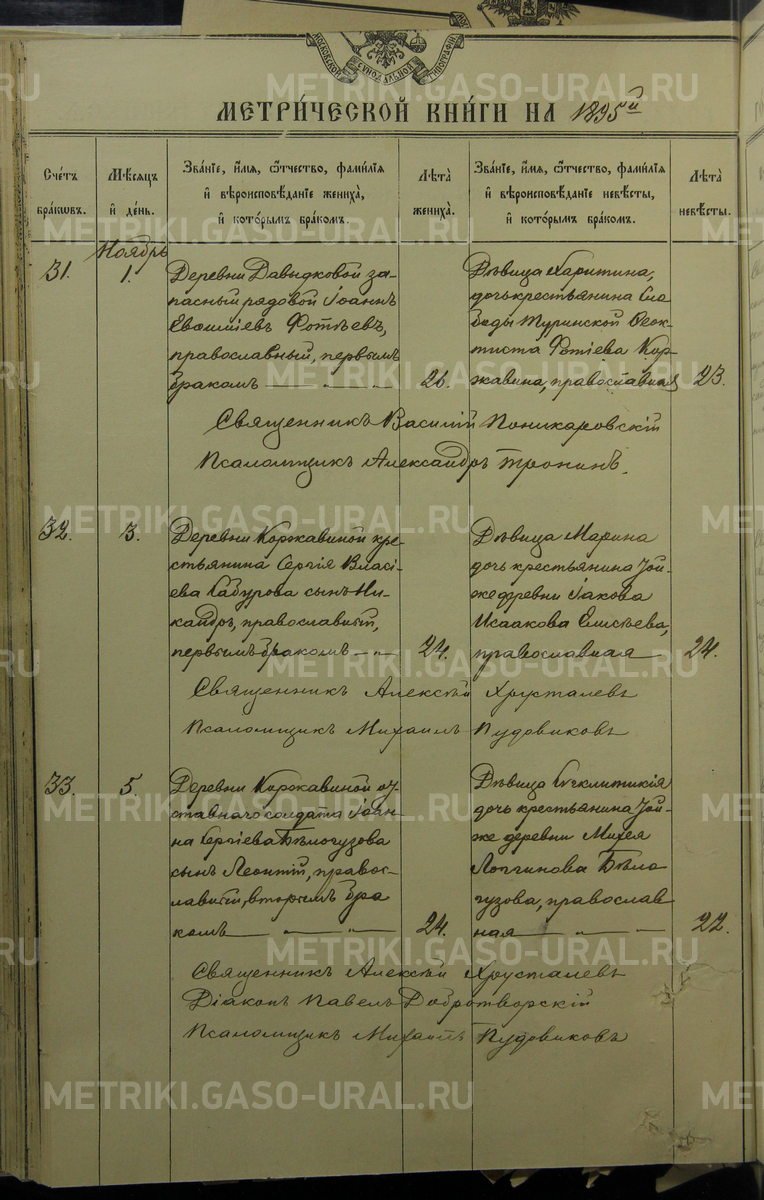 МЕТРИЧЕСКОЙ КНИГИ НА 1895й
Счетъ браковъ.
Мѣсяцъ и день.
Званіе, имя, отчество, фамилія и вѣроисповѣданіе жениха, и которымъ бракомъ.
Лѣта жениха.
Званіе, имя, отчество, фамилія и вѣроисповѣданіе невѣсты, и которымъ бракомъ.
Лѣта невѣсты.
Ноябрь
31.
1.
Деревни Давыдковой за-
пасный рядовой Іоаннъ
Фотѣевъ,
православный, первымъ
бракомъ
26.
Дѣвица Харитина,
дочь крестьянина Сло
боды Туринской Ѳеок-
тиста Фотіева Кор-
жавина, православная
23.
Священникъ Василій Поникаровскій
Псаломщикъ Александръ Тронинъ.
32.
3.
Деревни Коржавиной кре-
стьянина Сергія Власі-
ева Кабурова сынъ Ни-
кандръ, православный,
первымъ бракомъ
24.
Дѣвица Марина
дочь крестьянина той-
же деревни Іакова
Исаакова Елисѣева,
православная
24.
Священникъ Алексѣй Хрусталевъ
Псаломщикъ Михаилъ Пудовиковъ
33.
5.
Деревни Коржавиной от-
ставнаго солдата Іоан-
на Сергіева Бѣлогузова
сынъ Леонтій, правос-
лавный, вторымъ бра
комъ
24.
Дѣвица Синклитикія
дочь крестьянина той-
же деревни Михея
Логгинова Бѣло
гузова, православ
ная
22.
Священникъ Алексѣй Хрусталевъ
Діаконъ Павелъ Добротворскій
Псаломщикъ Михаилъ Пудовиковъ
METRIKI.GASO-URAL.RU